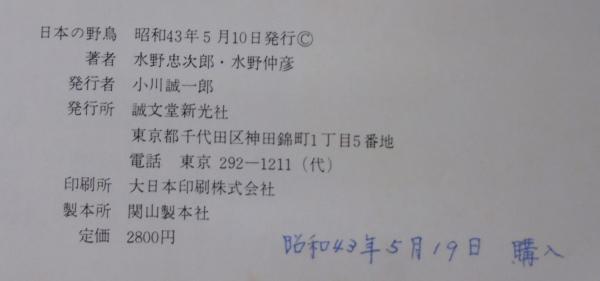 日本の野鳥　昭和43年5月10日発行©
著者　水野忠次郎・水野仲彦
発行者　小川誠一郎
発行所　誠文堂新光社
東京都千代田区神田錦町1丁目5番地
電話　東京 292—1211（代）
印刷所　大日本印刷株式会社
製本所　関山製本社
定価　2800円
昭和43年5月19日　購入